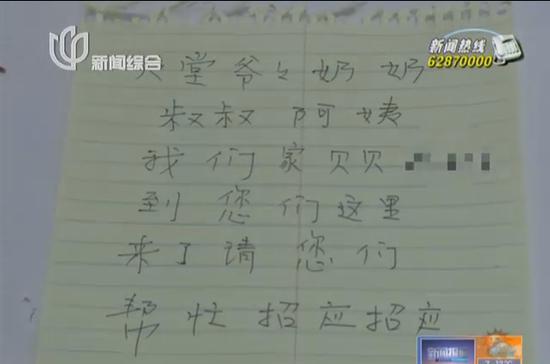 新闻综合
新闻热线
62870000
天堂爷々奶奶
叔叔阿姨
我们家贝贝
到您们这里
来了请您们
帮忙招应招应